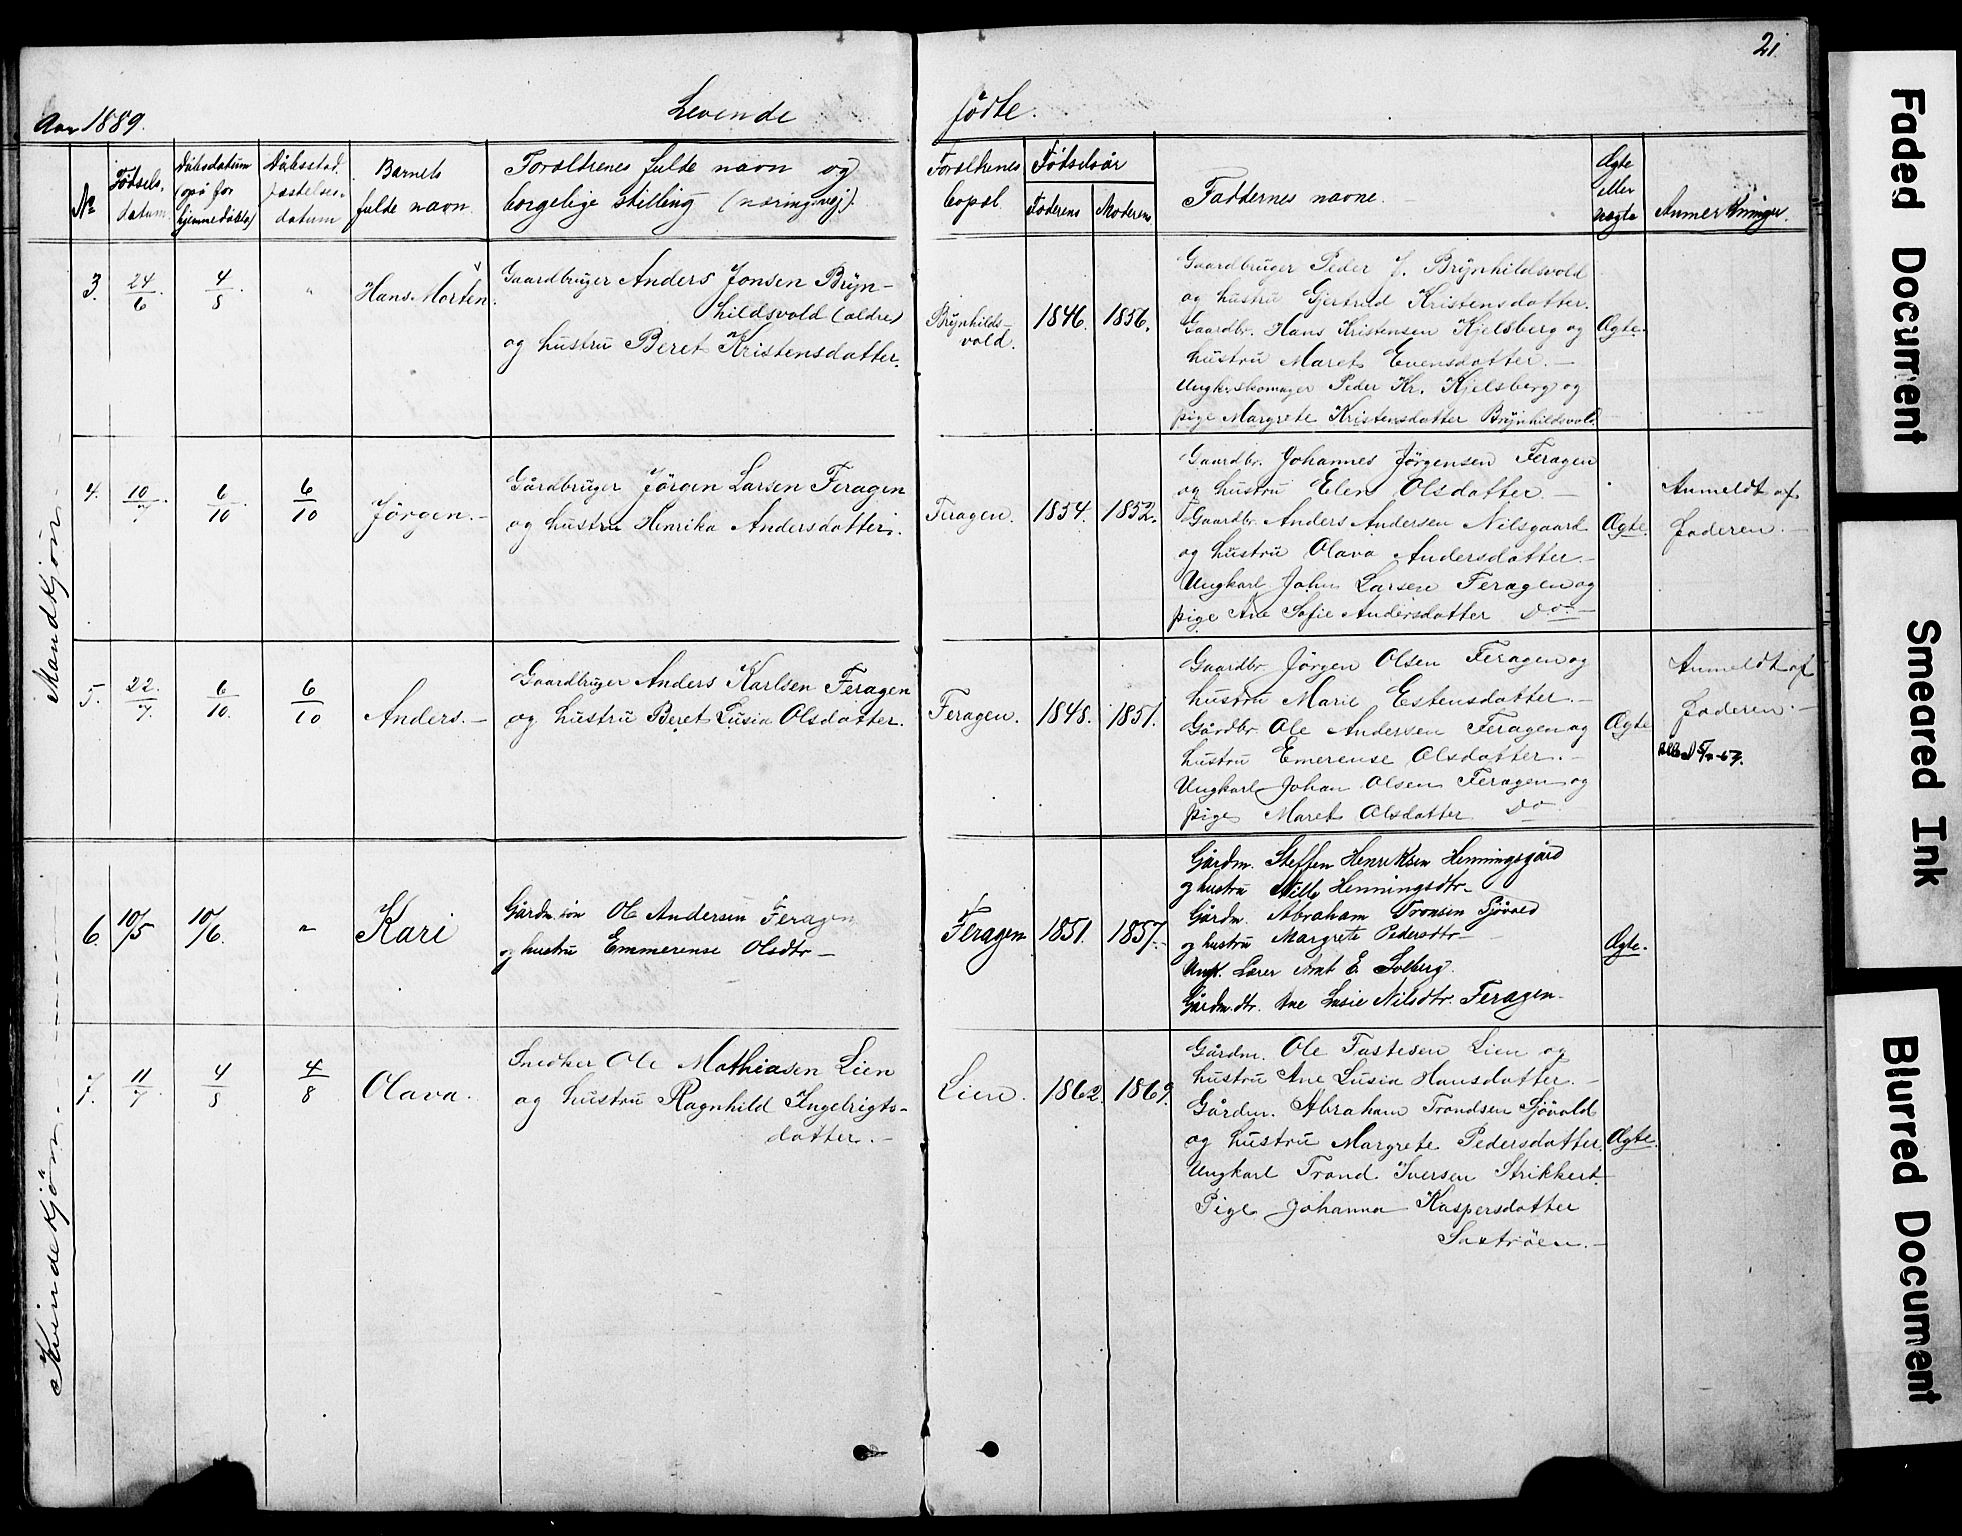 21.
Aar 1889.
Levende
fødte.
No
Fødsels-
datum
Dåbsdatum
(også for
hjemmedøbte)
Dåbsstad.
fæstelses-
datum
Barnets
fulde navn
Forældrenes fulde navn og
borgelige stilling (næringsvej).
Forældrenes
bopæl
Fødselsår
Faderens
Moderens
Faddernes navne.
Ægte
eller
uægte
Anmerkninger
Mandkjøn.
3.
24/6
4/8
"
Hans Morten.
Gaardbruger Anders Jonsen Bryn-
hildsvold (ældre)
og hustru Beret Kristensdatter.
Brynhilds-
vold.
1846.
1856.
Gaardbruger Peder J. Brynhildsvold
og hustru Gjertrud Kristensdatter.
Gaardbr. Hans Kristensen Kjelsberg og
hustru Maret Evensdatter. —
Ungk. skomager Peder Kr. Kjelsberg og
pige Margrete Kristensdatter Brynhildsvold.
Ægte.
4.
10/7.
6/10
6/10
Jörgen. —
Gårdbruger Jörgen Larsen Feragen
og hustru Henrika Andersdatter.
Feragen.
1854.
1852.
Gaardbr. Johannes Jørgensen Feragen
og hustru Elen Olsdatter —
Gaardbr. Anders Andersen Nilsgaard
og hustru Olava Andersdatter —
Ungkarl John Larsen Feragen og
pige Ane Sofie Andersdatter Do —
Ægte.
Anmeldt af
faderen. —
5.
22./7.
6/10.
6/10
Anders. —
Gaardbruger Anders Karlsen Feragen
og hustru Beret Lusia Olsdatter.
Feragen.
1848.
1851.
Gaardbr. Jörgen Olsen Feragen og
hustru Marie Estensdatter. —
Gårdbr. Ole Andersen Feragen og
hustru Emerense Olsdatter. —
Ungkarl Johan Olsen Feragen og
pige Maret Olsdatter Do
Ægte
Anmeldt af
faderen. —
Kvindekjøn.
6.
10/5
10/6.
"
Kari
Gårdm. søn Ole Andersen Feragen
og hustru Emmerense Olsdtr —
Feragen
1851.
1857. —
Gårdm. Steffen Henriksen Henningsgård
og hustru Nille Henningsdtr
Gårdm. Abraham Tronsen Sjövold
og hustru Margrete Pedersdtr —
Ungk. Lærer Arnt E. Solberg.
Gårdm. dtr. Ane Lusie Nilsdtr. Feragen. —
Ægte.
7.
11/7
4/8
4/8
Olava.
Snedker Ole Mathiasen Lien
og hustru Ragnhild Ingebrigts-
datter. —
Lien.
1862.
1869.
Gårdm. Ole Fastesen Lien og
hustru Ane Lusia Hansdatter. —
Gårdm. Abraham Trondsen Sjövold
og hustru Margrete Pedersdatter.
Ungkarl Trond Iversen Strikkert.
Pige Johanna Kaspersdatter
Sætröen. —
Ægte.
Faded Document
Smeared Ink
Blurred Document